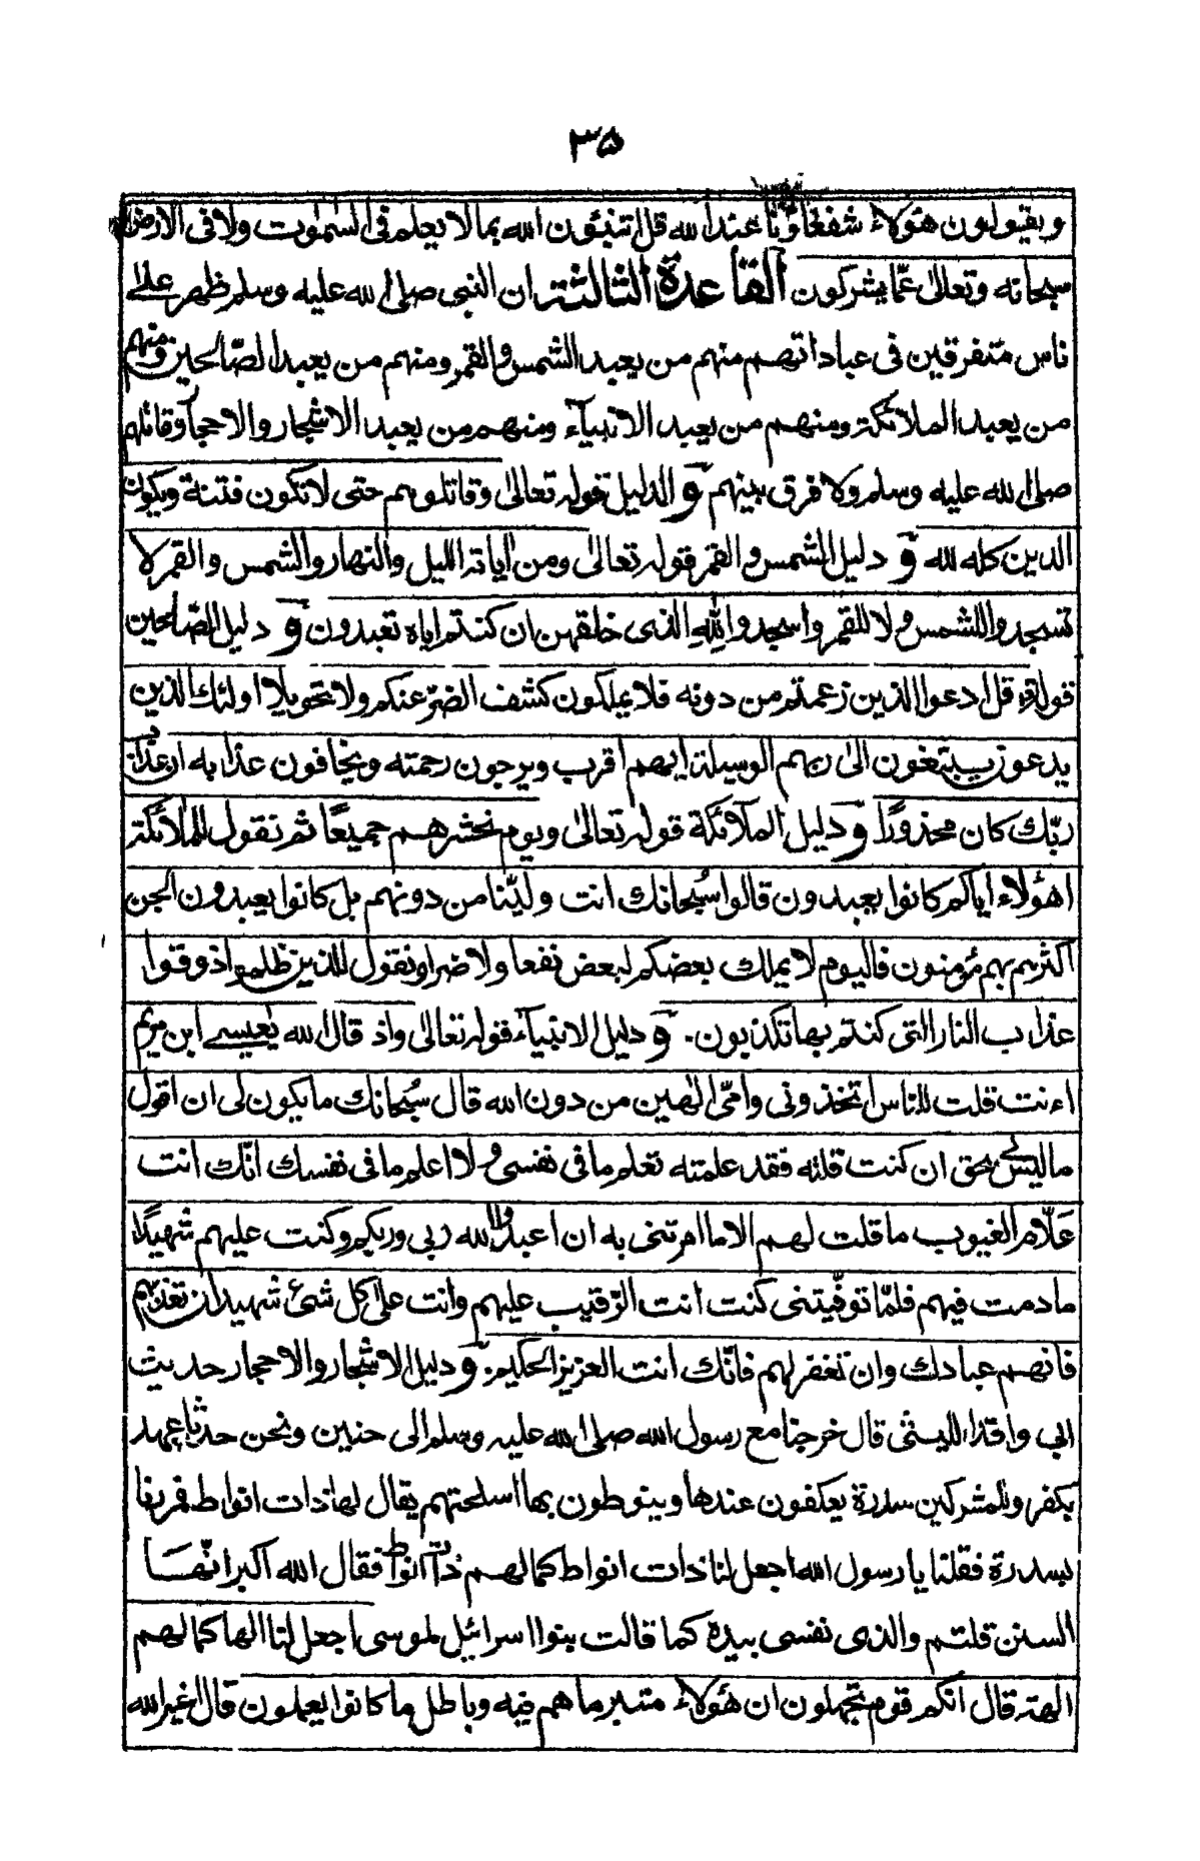 ۳۵
ويقولون هؤلاء شفعاؤنا عند الله قل اتنبئون الله بما لا يعلم فى السمٰوٰت ولا فى الارض
سبحانه وتعالىٰ عمّا يشركون القاعدة الثالثة ان النبى صلى الله عليه وسلم ظهر علے
ناس متفرقين فى عباداتهم منهم من يعبد الشمس والقمر ومنهم من يعبد الصّالحين ومنهم
من يعبد الملائكة ومنهم من يعبد الانبيآء ومنهم من يعبد الاشجار والاحجار وقاتلهم
صلى الله عليه وسلم ولا فرق بينهم وَ الدليل قوله تعالىٰ وقاتلوهم حتى لا تكون فتنة ويكون
الدين كله لله وَ دليل الشمس والقمر قوله تعالىٰ ومن اٰياته الليل والنهار والشمس والقمر لا
تسجدوا للشمس ولا للقمر واسجدوا لِلّٰهِ الذى خلقهن ان كنتم اياه تعبدون وَ دليل الصّالحين
قوله قل ادعوا الذين زعمتم من دونه فلا يملكون كشف الضرّ عنكم ولا تحويلا اولئك الذين
يدعون يبتغون الىٰ ربهم الوسيلة ايهم اقرب ويرجون رحمته ويخافون عذابه ان عذاب
ربّك كان محذورًا وَ دليل الملآئكة قوله تعالىٰ ويوم نحشرهم جميعًا ثم نقول للملآئكة
اهؤلاء اياكم كانوا يعبدون قالوا سُبحانك انت وليّنا من دونهم بل كانوا يعبدون الجن
اكثرهم بهم مؤمنون فاليوم لا يملك بعضكم لبعض نفعا ولا ضرا ونقول للذين ظلموا ذوقوا
عذاب النار التى كنتم بها تكذبون. وَ دليل الانبيآء قوله تعالىٰ واذ قال الله يٰعيسے ابن مريم
اءنت قلت للناس اتخذونى وامّى الٰهين من دون الله قال سُبحانك ما يكون لى ان اقول
ما ليس لى بحق ان كنت قلته فقد علمته تعلم ما فى نفسى ولا اعلم ما فى نفسك انّك انت
عَلّام الغيوب ما قلت لهم الا ما امرتنى به ان اعبدوا الله ربى وربكم وكنت عليهم شهيدًا
ما دمت فيهم فلمّا توفّيتنى كنت انت الرّقيب عليهم وانت علىٰ كل شئ شهيد ان تعذبهم
فانهم عبادك وان تغفر لهم فانّك انت العزيز الحكيم. وَ دليل الاشجار والاحجار حديث
ابى واقد الليثى قال خرجنا مع رسول الله صلى الله عليه وسلم الى حنين ونحن حدثا عهد
بكفر وللمشركين سدرة يعكفون عندها وينوطون بها اسلحتهم يقال لها ذات انواط فمررنا
بسدرة فقلنا يا رسول الله اجعل لنا ذات انواط كما لهم ذات انواط فقال الله اكبر انّهَا
السنن قلتم والذى نفسى بيده كما قالت بنوا اسرائيل لموسى اجعل لنا الها كما لهم
الهة قال انكم قوم تجهلون ان هؤلاء متبر ما هم فيه وباطل ما كانوا يعملون قال اغير الله